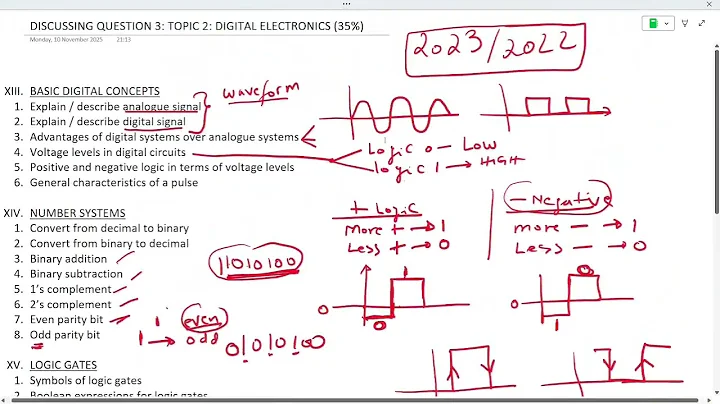 DISCUSSING QUESTION 3: TOPIC 2: DIGITAL ELECTRONICS (35%)
Monday, 10 November 2025 21:13
2023/2022
XIII. BASIC DIGITAL CONCEPTS
waveform
1. Explain / describe analogue signal
2. Explain / describe digital signal
3. Advantages of digital systems over analogue systems
4. Voltage levels in digital circuits
Logic 0 — Low
logic 1 → HIGH
5. Positive and negative logic in terms of voltage levels
6. General characteristics of a pulse
+ Logic
More + → 1
Less + → 0
- Negative
more - → 1
Less - → 0
XIV. NUMBER SYSTEMS
1. Convert from decimal to binary
2. Convert from binary to decimal
3. Binary addition
11010100
4. Binary subtraction
5. 1's complement
6. 2's complement
7. Even parity bit
1 even
8. Odd parity bit
1 → odd
01010100
0
1
0
0
0
1
XV. LOGIC GATES
1. Symbols of logic gates
2. Boolean expressions for logic gates